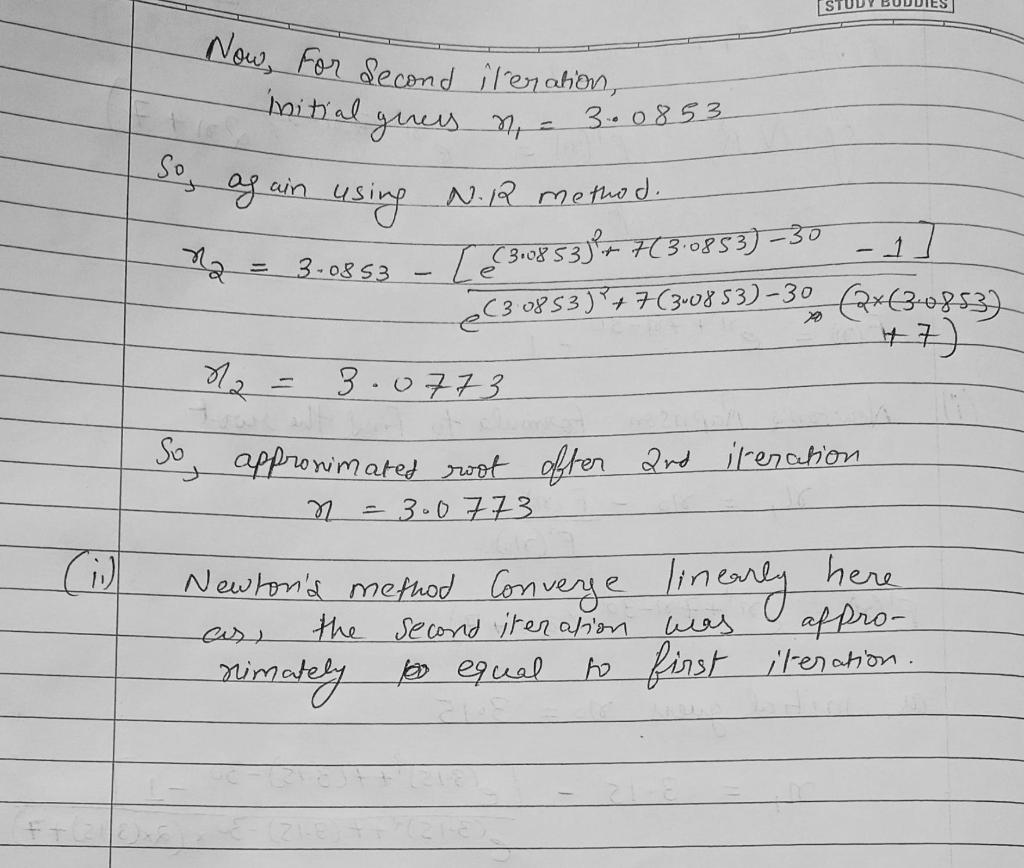 STUDY BUDDIES
Now, For Second iteration,
initial guess x₁ = 3.0853
So, again using N.R method.
x₂ = 3.0853 - [e^(3.0853)²+7(3.0853)-30 - 1]
e^(3.0853)²+7(3.0853)-30 (2×(3.0853)
+7)
x₂ = 3.0773
So, approximated root after 2nd iteration
x = 3.0773
(ii) Newton's method Converge linearly here
as, the second iteration was appro-
ximately equal to first iteration.